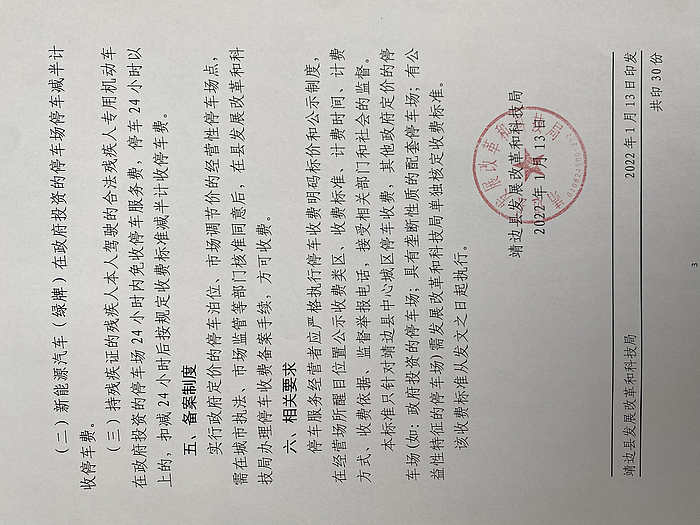 （二）新能源汽车（绿牌）在政府投资的停车场停车减半计
收停车费。
（三）持残疾证的残疾人本人驾驶的合法残疾人专用机动车
在政府投资的停车场 24 小时内免收停车服务费，停车 24 小时以
上的，扣减 24 小时后按规定收费标准减半计收停车费。
五、备案制度
实行政府定价的停车泊位、市场调节价的经营性停车场点，
需在城市执法、市场监管等部门核准同意后，在县发展改革和科
技局办理停车收费备案手续，方可收费。
六、相关要求
停车服务经营者应严格执行停车收费明码标价和公示制度，
在经营场所醒目位置公示收费类区、收费标准、计费时间、计费
方式、收费依据、监督举报电话，接受相关部门和社会的监督。
本标准只针对靖边县中心城区停车收费，其他政府定价的停
车场(如：政府投资的停车场；具有垄断性质的配套停车场；有公
益性特征的停车场)需发展改革和科技局单独核定收费标准。
该收费标准从发文之日起执行。
靖边县发展改革和科技局
2022 年 1 月 13 日
靖边县发展改革和科技局
2022 年 1 月 13 日印发
共印 30 份
3